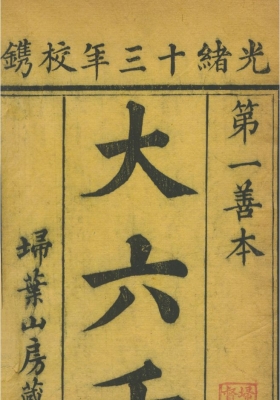 光緒十三年校鐫
第一善本
大六
埽葉山房藏